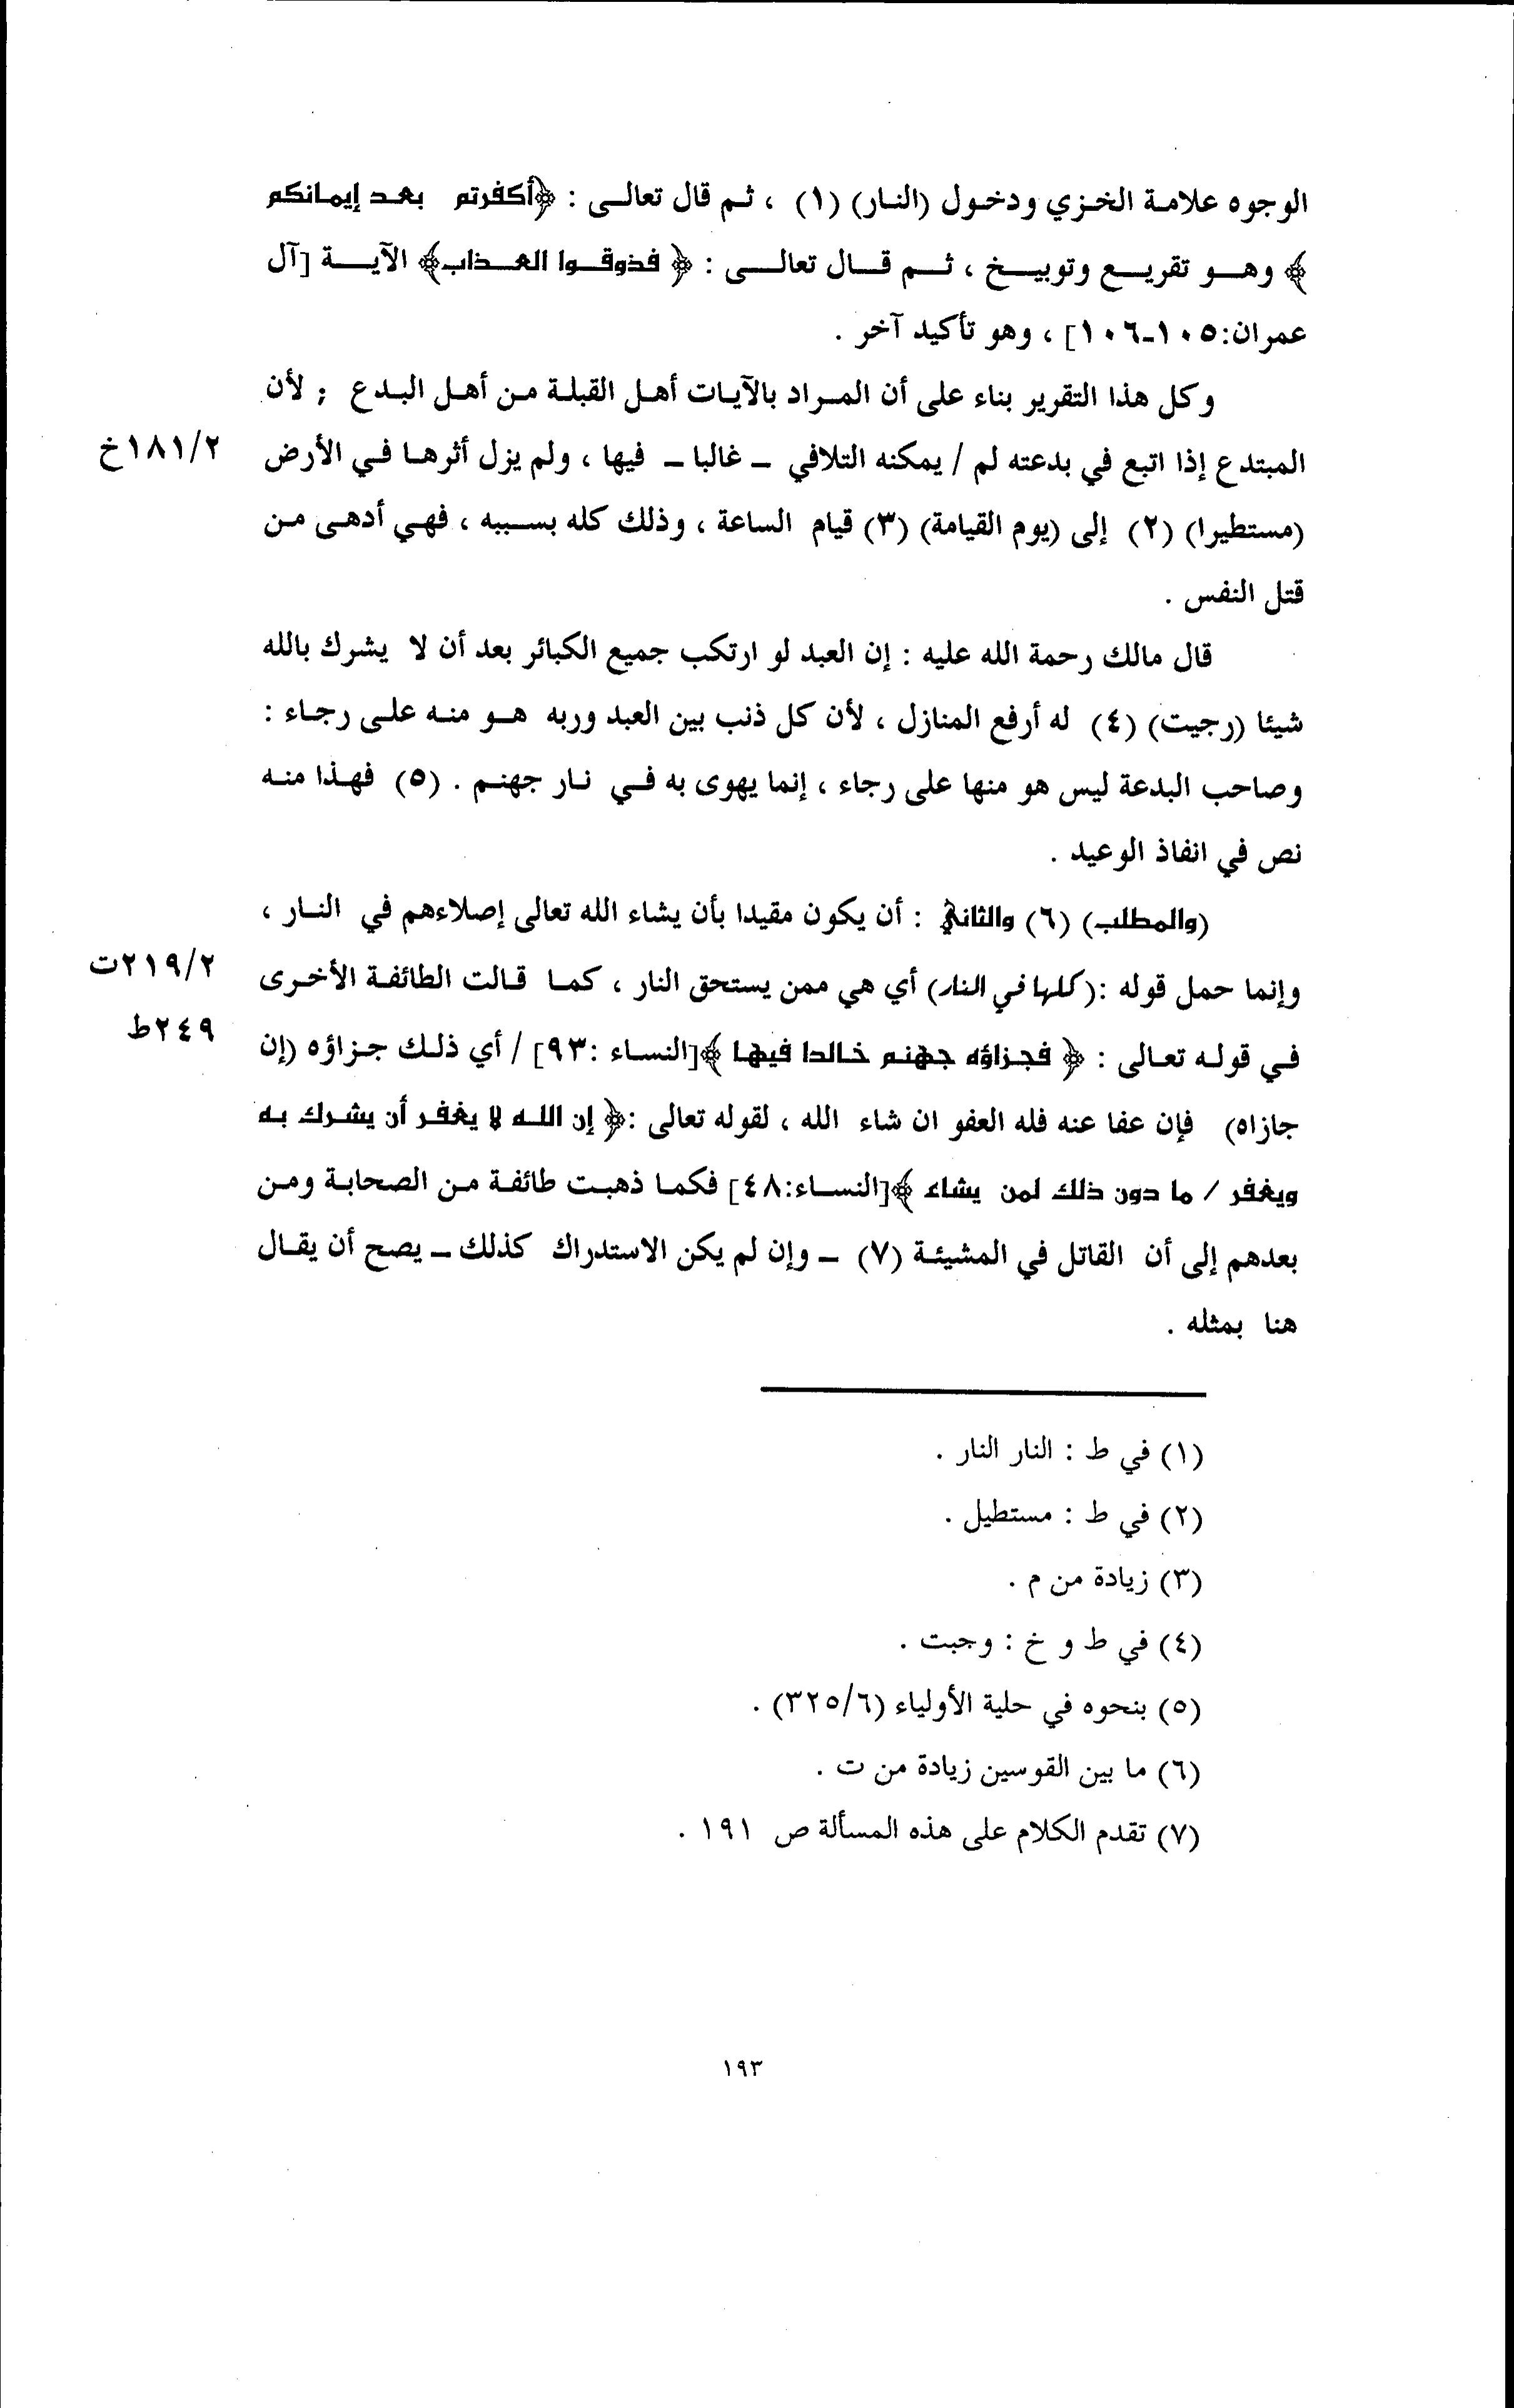 الوجوه علامة الخزي ودخول (النار) (١) ، ثم قال تعالى : ﴿أكفرتم بعد إيمانكم
﴾ وهو تقريع وتوبيخ ، ثم قال تعالى : ﴿ فذوقوا العذاب﴾ الآية [آل
عمران:١٠٥-١٠٦] ، وهو تأكيد آخر .
وكل هذا التقرير بناء على أن المراد بالآيات أهل القبلة من أهل البدع ; لأن
المبتدع إذا اتبع في بدعته لم / يمكنه التلافي - غالبا - فيها ، ولم يزل أثرها في الأرض
١٨١/٢خ
(مستطيرا) (٢) إلى (يوم القيامة) (٣) قيام الساعة ، وذلك كله بسببه ، فهي أدهى من
قتل النفس .
قال مالك رحمة الله عليه : إن العبد لو ارتكب جميع الكبائر بعد أن لا يشرك بالله
شيئا (رجيت) (٤) له أرفع المنازل ، لأن كل ذنب بين العبد وربه هو منه على رجاء :
وصاحب البدعة ليس هو منها على رجاء ، إنما يهوى به في نار جهنم . (٥) فهذا منه
نص في انفاذ الوعيد .
(والمطلب) (٦) والثاني : أن يكون مقيدا بأن يشاء الله تعالى إصلاءهم في النار ،
وإنما حمل قوله :(كلها في النار) أي هي ممن يستحق النار ، كما قالت الطائفة الأخرى
٢١٩/٢ت
في قوله تعالى : ﴿ فجزاؤه جهنم خالدا فيها ﴾[النساء :٩٣] / أي ذلك جزاؤه (إن
٢٤٩ط
جازاه) فإن عفا عنه فله العفو ان شاء الله ، لقوله تعالى :﴿ إن الله لا يغفر أن يشرك به
ويغفر / ما دون ذلك لمن يشاء ﴾[النساء:٤٨] فكما ذهبت طائفة من الصحابة ومن
بعدهم إلى أن القاتل في المشيئة (٧) - وإن لم يكن الاستدراك كذلك - يصح أن يقال
هنا بمثله .
(١) في ط : النار النار .
(٢) في ط : مستطيل .
(٣) زيادة من م .
(٤) في ط و خ : وجبت .
(٥) بنحوه في حلية الأولياء (٣٢٥/٦) .
(٦) ما بين القوسين زيادة من ت .
(٧) تقدم الكلام على هذه المسألة ص ١٩١ .
١٩٣